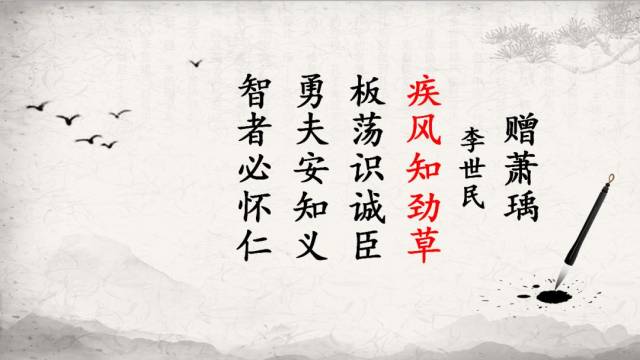 赠萧瑀
李世民
疾风知劲草
板荡识诚臣
勇夫安知义
智者必怀仁